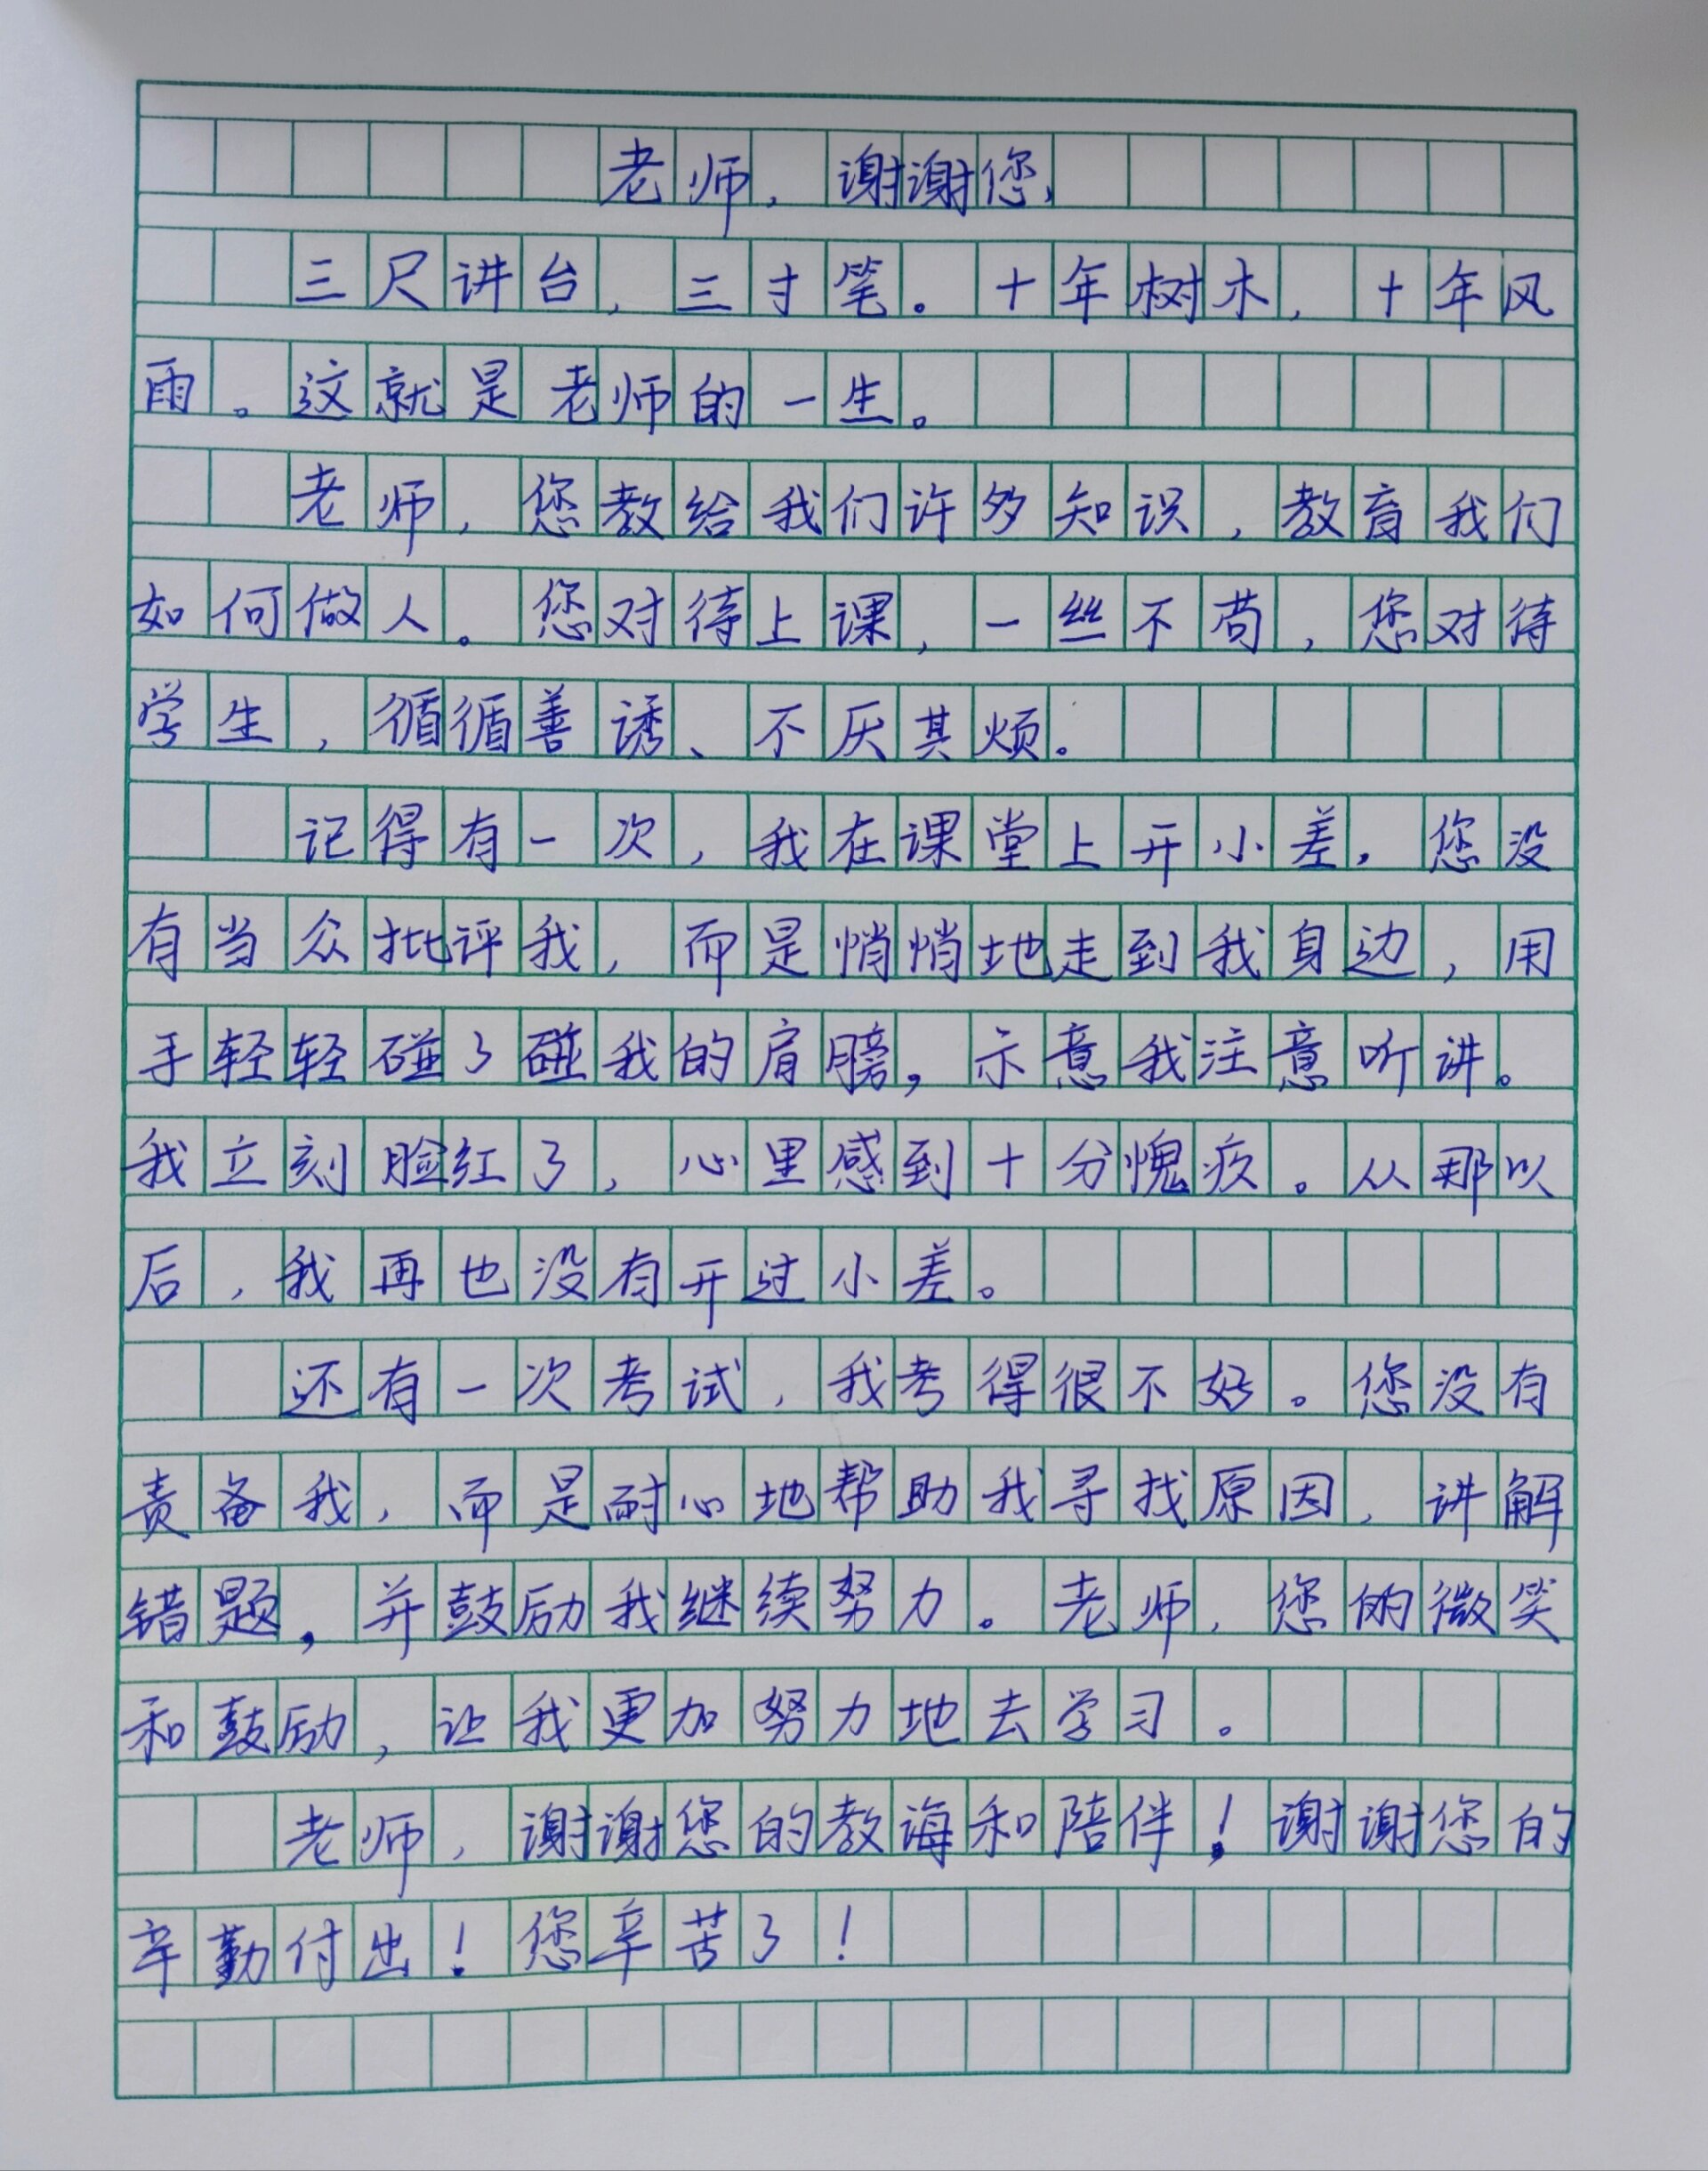 老师，谢谢您，
三尺讲台，三寸笔。十年树木，十年风
雨。这就是老师的一生。
老师，您教给我们许多知识，教育我们
如何做人。您对待上课，一丝不苟，您对待
学生，循循善诱、不厌其烦。
记得有一次，我在课堂上开小差，您没
有当众批评我，而是悄悄地走到我身边，用
手轻轻碰了碰我的肩膀，示意我注意听讲。
我立刻脸红了，心里感到十分愧疚。从那以
后，我再也没有开过小差。
还有一次考试，我考得很不好。您没有
责备我，而是耐心地帮助我寻找原因，讲解
错题，并鼓励我继续努力。老师，您的微笑
和鼓励，让我更加努力地去学习。
老师，谢谢您的教诲和陪伴！谢谢您的
辛勤付出！您辛苦了！